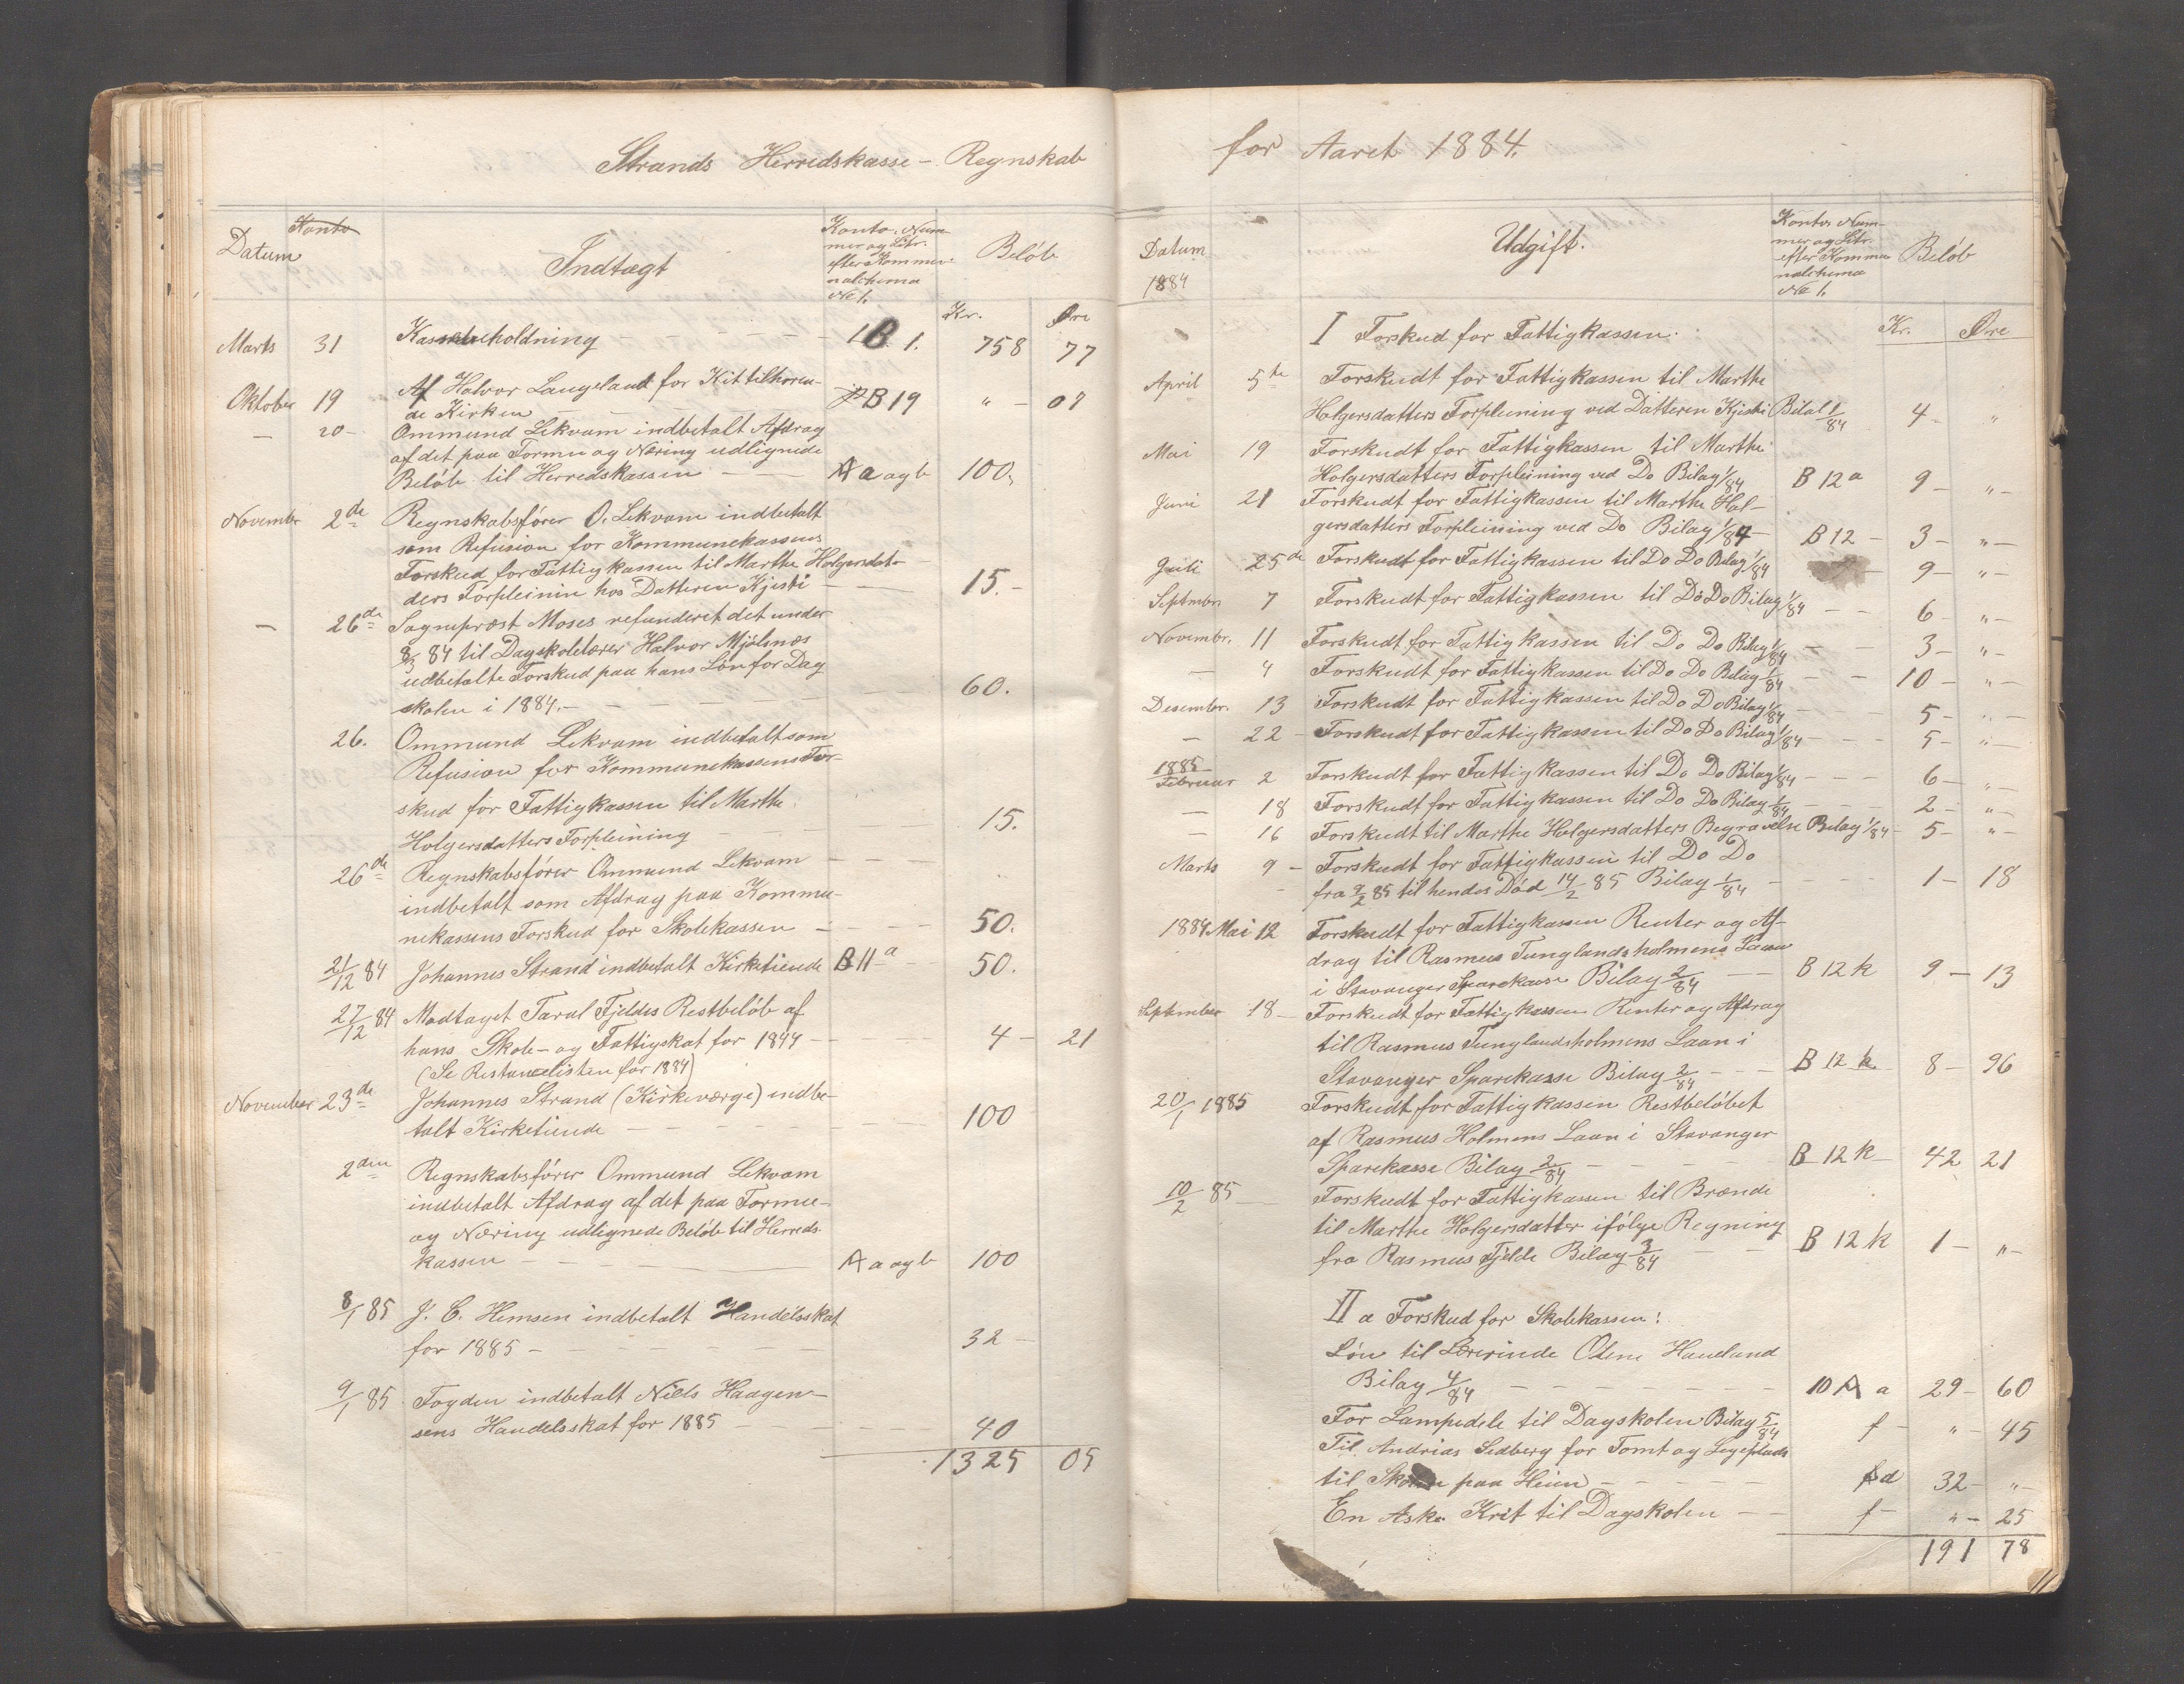 Strands Herredskasse - Regnskab
Datum Konto Indtægt Konto. Num- Beløb
mer og Litr.
efter Kommu-
nalchema
No 1.
Kr. Øre
Marts 31 Kassebeholdning - - - - 1 B 1. 758 77
Oktober 19 Af Halvor Langeland for Kit tilhøren-
de Kirken - - - B 19 " - 07
- 20 - Ommund Lekvam indbetalt Afdrag
af det paa Formue og Næring udlignede
Beløb til Herredskassen - - A a og b 100.
Novembr 2de Regnskabsfører O. Lekvam indbetalt
som Refusion for Kommunekassens
Forskud for Fattigkassen til Marthe Holgersdat-
ders Forpleinin hos Datteren Kjesti - 15. -
- 26de Sogneprest Moses refunderet det under
8/3 84 til Dagskolelærer Halvor Mjølsnæs
udbetalte Forskud paa hans Løn for Dag
skolen i 1884. - - - - - 60.
26. Ommund Lekvam indbetalt som
Refusion for Kommunekassens For-
skud for Fattigkassen til Marthe
Holgersdatters Forpleining - - - 15.
26de Regnskabsfører Ommund Lekvam - - -
indbetalt som Afdrag paa Kommu-
nekassens Forskud for Skolekassen - - - - 50.
21/12 84 Johannes Strand indbetalt Kirketiende B 11 a - - 50.
27/12 84 Modtaget Taral Fjeldes Restbeløb af
hans Skole- og Fattigskat for 1844 - - - - 4 - 21
(Se Restancelisten for 1884)
November 23de Johannes Strand (Kirkeværge) indbe-
talt Kirketiende - - - - - - 100
2den Regnskabsfører Ommund Lekvam
indbetalt Afdrag af det paa Formue-
og Næring udlignede Beløb til Herreds-
kassen - - - - A a og b 100
8/1 85 J. C. Hemsen indbetalt Handelsskat
for 1885 - - - - - - 32 -
9/1 85 Fogden indbetalt Niels Haagen-
sens Handelsskat for 1885 - - - - 40
1325 05
for Aaret 1884.
Datum Udgift. Konto Num- Beløb
1884 mer og Litr.
efter Kommu
nalchema
No 1.
Kr. Øre
I Forskud for Fattigkassen.
April 5te Forskudt for Fattigkassen til Marthe
Holgersdatters Forpleining ved Datteren Kjesti Bilal 1/84 4 - "
Mai 19 Forskudt for Fattigkassen til Marthe
Holgersdatters Forpleining ved Do Bilag 1/84 B 12 a 9 - " -
Juni 21 Forskudt for Fattigkassen til Marthe Hol-
gersdatters Forpleining ved Do Bilag 1/84 - B 12 - 3 - " -
Juli 25de Forskudt for Fattigkassen til Do Do Bilag 1/84 - 9 - " -
Septmbr. 7 Forskudt for Fattigkassen til Do Do Bilag 1/84 - - 6 - " -
Novembr. 11 Forskudt for Fattigkassen til Do Do Bilag 1/84 - - 3 - " -
- 4 Forskudt for Fattigkassen til Do Do Bilag 1/84 - - 10 - " -
Desembr. 13 Forskudt for Fattigkassen til Do Do Bilag 1/84 - - - 5 - " -
- 22 - Forskudt for Fattigkassen til Do Do Bilag 1/84 - - - 5 - " -
1885
Februar 2 Forskudt for Fattigkassen til Do Do Bilag 1/84 - - - 6 - " -
- 18 Forskudt for Fattigkassen til Do Do Bilag 1/84 - - - 2 - " -
- 16 Forskudt til Marthe Holgersdatters Begravelse Bilag 1/84 - 5 - " -
Marts 9 - Forskudt for Fattigkassen til Do Do
fra 9/2 85 til hendes Død 14/2 85 Bilag 1/84 - - - - 1 - 18
1884 Mai 12 Forskudt for Fattigkassen Renter og Af-
drag til Rasmus Tunglandsholmens Laan
i Stavanger Sparekasse Bilag 2/84 - - B 12 k 9 - 13
September 18 - Forskudt for Fattigkassen Renter og Afdrag
til Rasmus Tunglandsholmens Laan i
Stavanger Sparekasse Bilag 2/84 - - - B 12 k 8 - 96
20/1 1885 Forskudt for Fattigkassen Restbeløbet
af Rasmus Holmens Laan i Stavanger
Sparekasse Bilag 2/84 - - - - B 12 k - 42 21
10/2 85 - Forskudt for Fattigkassen til Brænde
til Marthe Holgersdatter ifølge Regning
fra Rasmus Fjelde Bilag 3/84 - - B 12 k 1 - " -
II a Forskud for Skolekassen:
Løn til Lærerinde Olene Haueland
Bilag 4/84 - - - - - - - 10 A a 29 - 60
For Lampedele til Dagskolen Bilag 5/84 f - " - 45
Til Andrias Sedberg for Tomt og Legeplads
til Skolen paa Heien - - - - d 32 - " -
En Aske Krit til Dagskolen - - f - " - 25
191 78